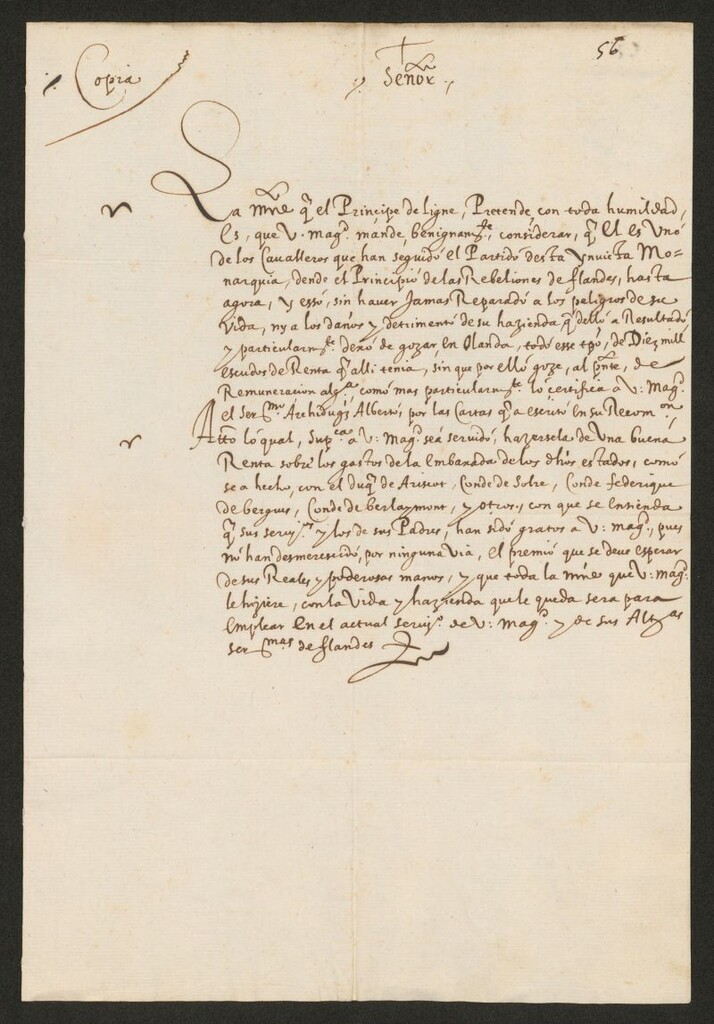 56
Copia
Señor
La mrče q̃ el Principe de ligne, Pretende, con toda humildad,
Es, que V. magᵈ. mande, benignamᵗᵉ, considerar, q̃ El es Vno
de los Caualleros que han seguido el Partido desta ynuicta Mo=
narquia, dende el Principio delas Rebeliones de flandes, hasta
agora, y esso, sin hauer Jamas Reparado a los peligros de su
Vida, ny a los daños y detrimento de su hazienda q̃ dello a Resultado
y particularmᵗᵉ dexo de gozar, en Olanda, todo esse tpo, de Diez mill
escudos de Renta q̃ alli tenia, sin que por ello goze, al pnᵗᵉ, de
Remuneracion algᵃ, como mas particularmᵗᵉ lo certifica a V. Magᵈ
el Serᵐᵒ Archiduq̃ Alberto, por las Cartas q̃ a escrito en su Recomᵒⁿ
Atto lo qual, Supᶜᵃ a V. Magᵈ sea seruido, hazersela de Vna buena
Renta sobre los gastos de la Embaxada de los dhos estados, como
se a hecho, con el duq̃ de Ariscot, Conde de Solre, Conde federique
de bergues, Conde de berlaymont, y otros, con que se entienda
q̃ sus seruiᵒˢ y los de sus Padres, han sido gratos a V. magᵈ, pues
no han desmerescido, por ninguna via, el premio que se deue esperar
de sus Reales y poderosas manos, y que toda la mrče que V. magᵈ
le hiziere, con la Vida y hazienda que le queda sera para
Emplear en el actual seruiᵒ de V. magᵈ y de sus Altᶻᵃˢ
serᵐᵃˢ de flandes